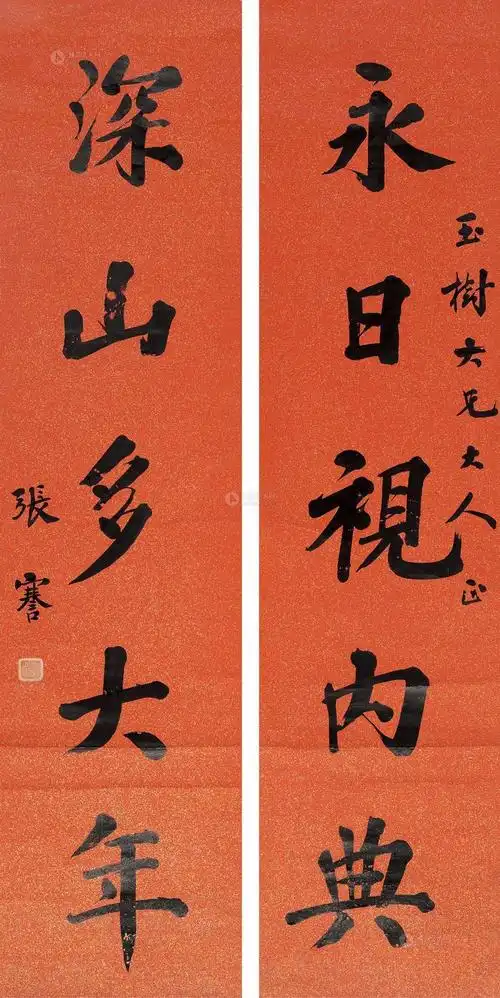 玉樹大兄大人正
永日視內典
深山多大年
張謇